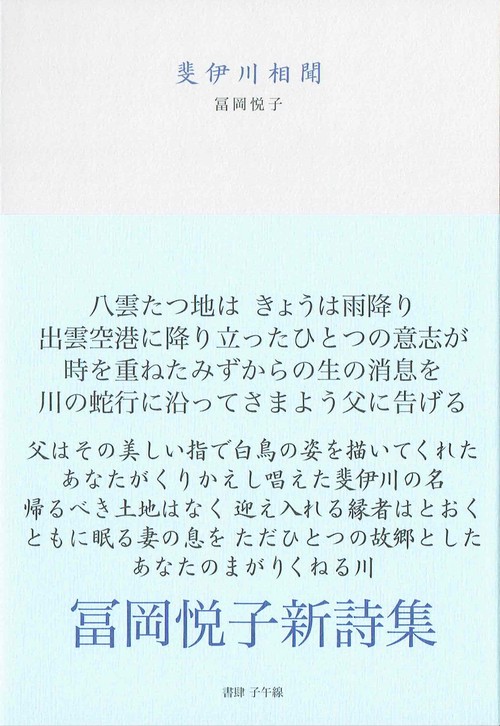 斐伊川相聞
冨岡悦子
八雲たつ地は きょうは雨降り
出雲空港に降り立ったひとつの意志が
時を重ねたみずからの生の消息を
川の蛇行に沿ってさまよう父に告げる
父はその美しい指で白鳥の姿を描いてくれた
あなたがくりかえし唱えた斐伊川の名
帰るべき土地はなく 迎え入れる縁者はとおく
ともに眠る妻の息を ただひとつの故郷とした
あなたのまがりくねる川
冨岡悦子新詩集
書肆 子午線